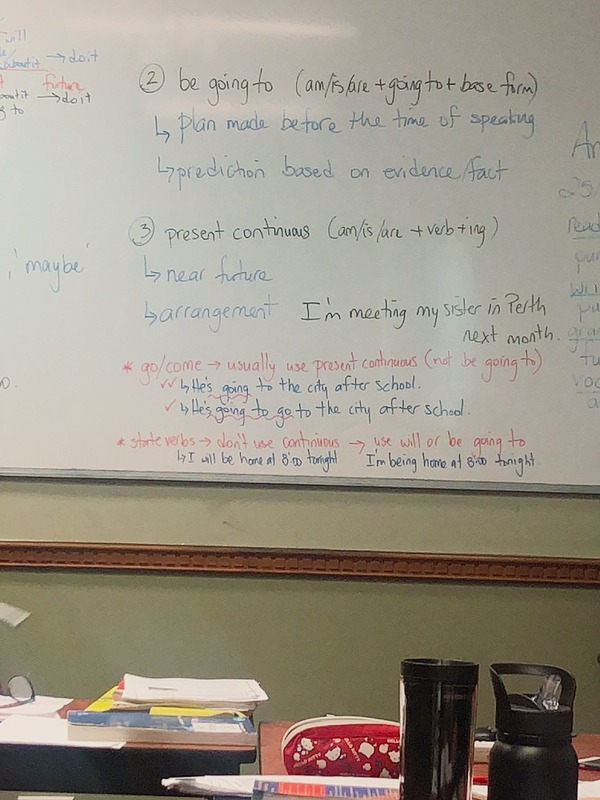 will
about it → do it
future
→ do it
g to
, 'maybe'
② be going to (am/is/are + going to + base form)
↳ plan made before the time of speaking
↳ prediction based on evidence/fact
③ present continuous (am/is/are + verb+ing)
↳ near future
↳ arrangement I'm meeting my sister in Perth
next month.
* go/come → usually use present continuous (not be going to)
✓✓ ↳ He's going to the city after school.
✓ ↳ He's going to go to the city after school.
* state verbs → don't use continuous → use will or be going to
↳ I will be home at 8:00 tonight I'm being home at 8:00 tonight
HELLO KITTY